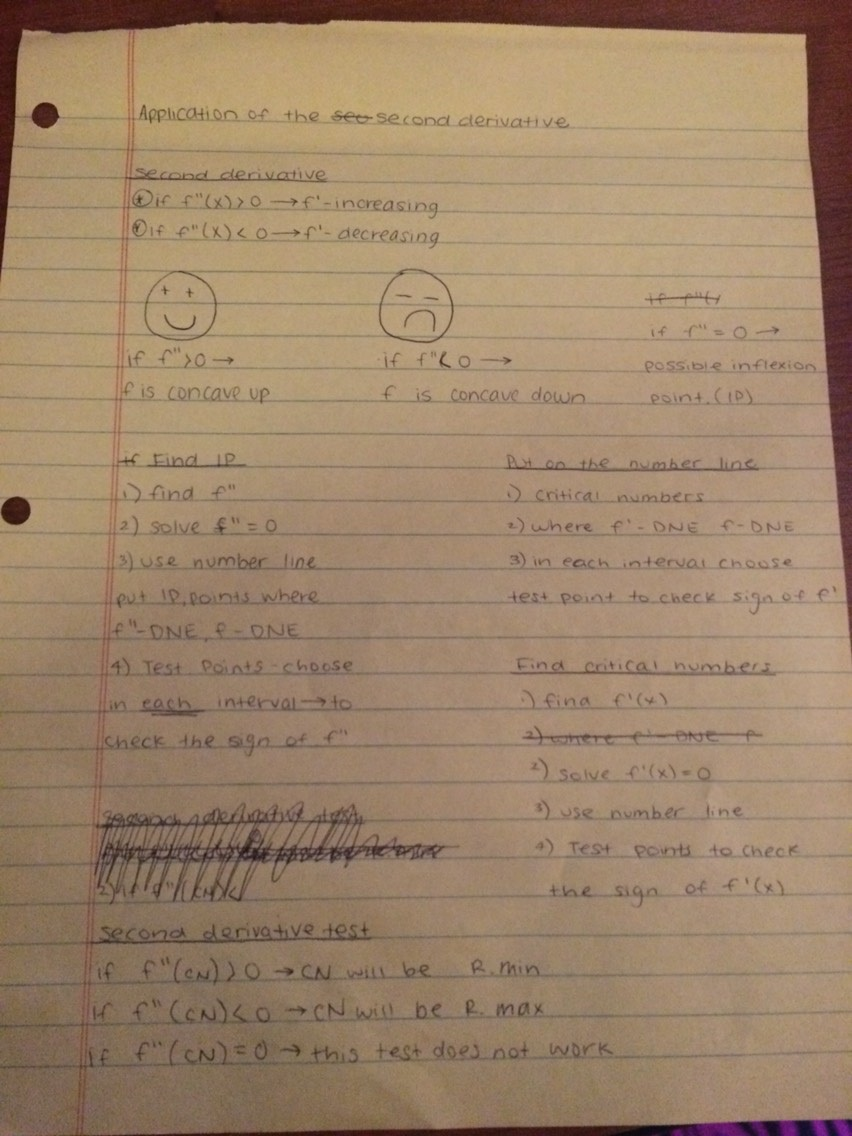 Application of the sec second derivative
second derivative
* if f"(x) > 0 → f'-increasing
* if f"(x) < 0 → f'- decreasing
if f"(x
if f" > 0 →
f is concave up
if f" < 0 →
f is concave down
if f" = 0 →
possible inflexion
point. (IP)
If Find IP
1) find f"
2) solve f" = 0
3) use number line
put IP, points where
f"-DNE, f-DNE
4) Test Points-choose
in each interval → to
check the sign of f"
Put on the number line
1) critical numbers
2) where f'-DNE f-DNE
3) in each interval choose
test point to check sign of f'
Find critical numbers
1) find f'(x)
2) where f'-DNE f
2) solve f'(x) = 0
3) use number line
4) Test points to check
the sign of f'(x)
second derivative test
2) if f"(CN) <
second derivative test
if f"(CN) > 0 → CN will be R. min
if f"(CN) < 0 → CN will be R. max
if f"(CN) = 0 → this test does not work